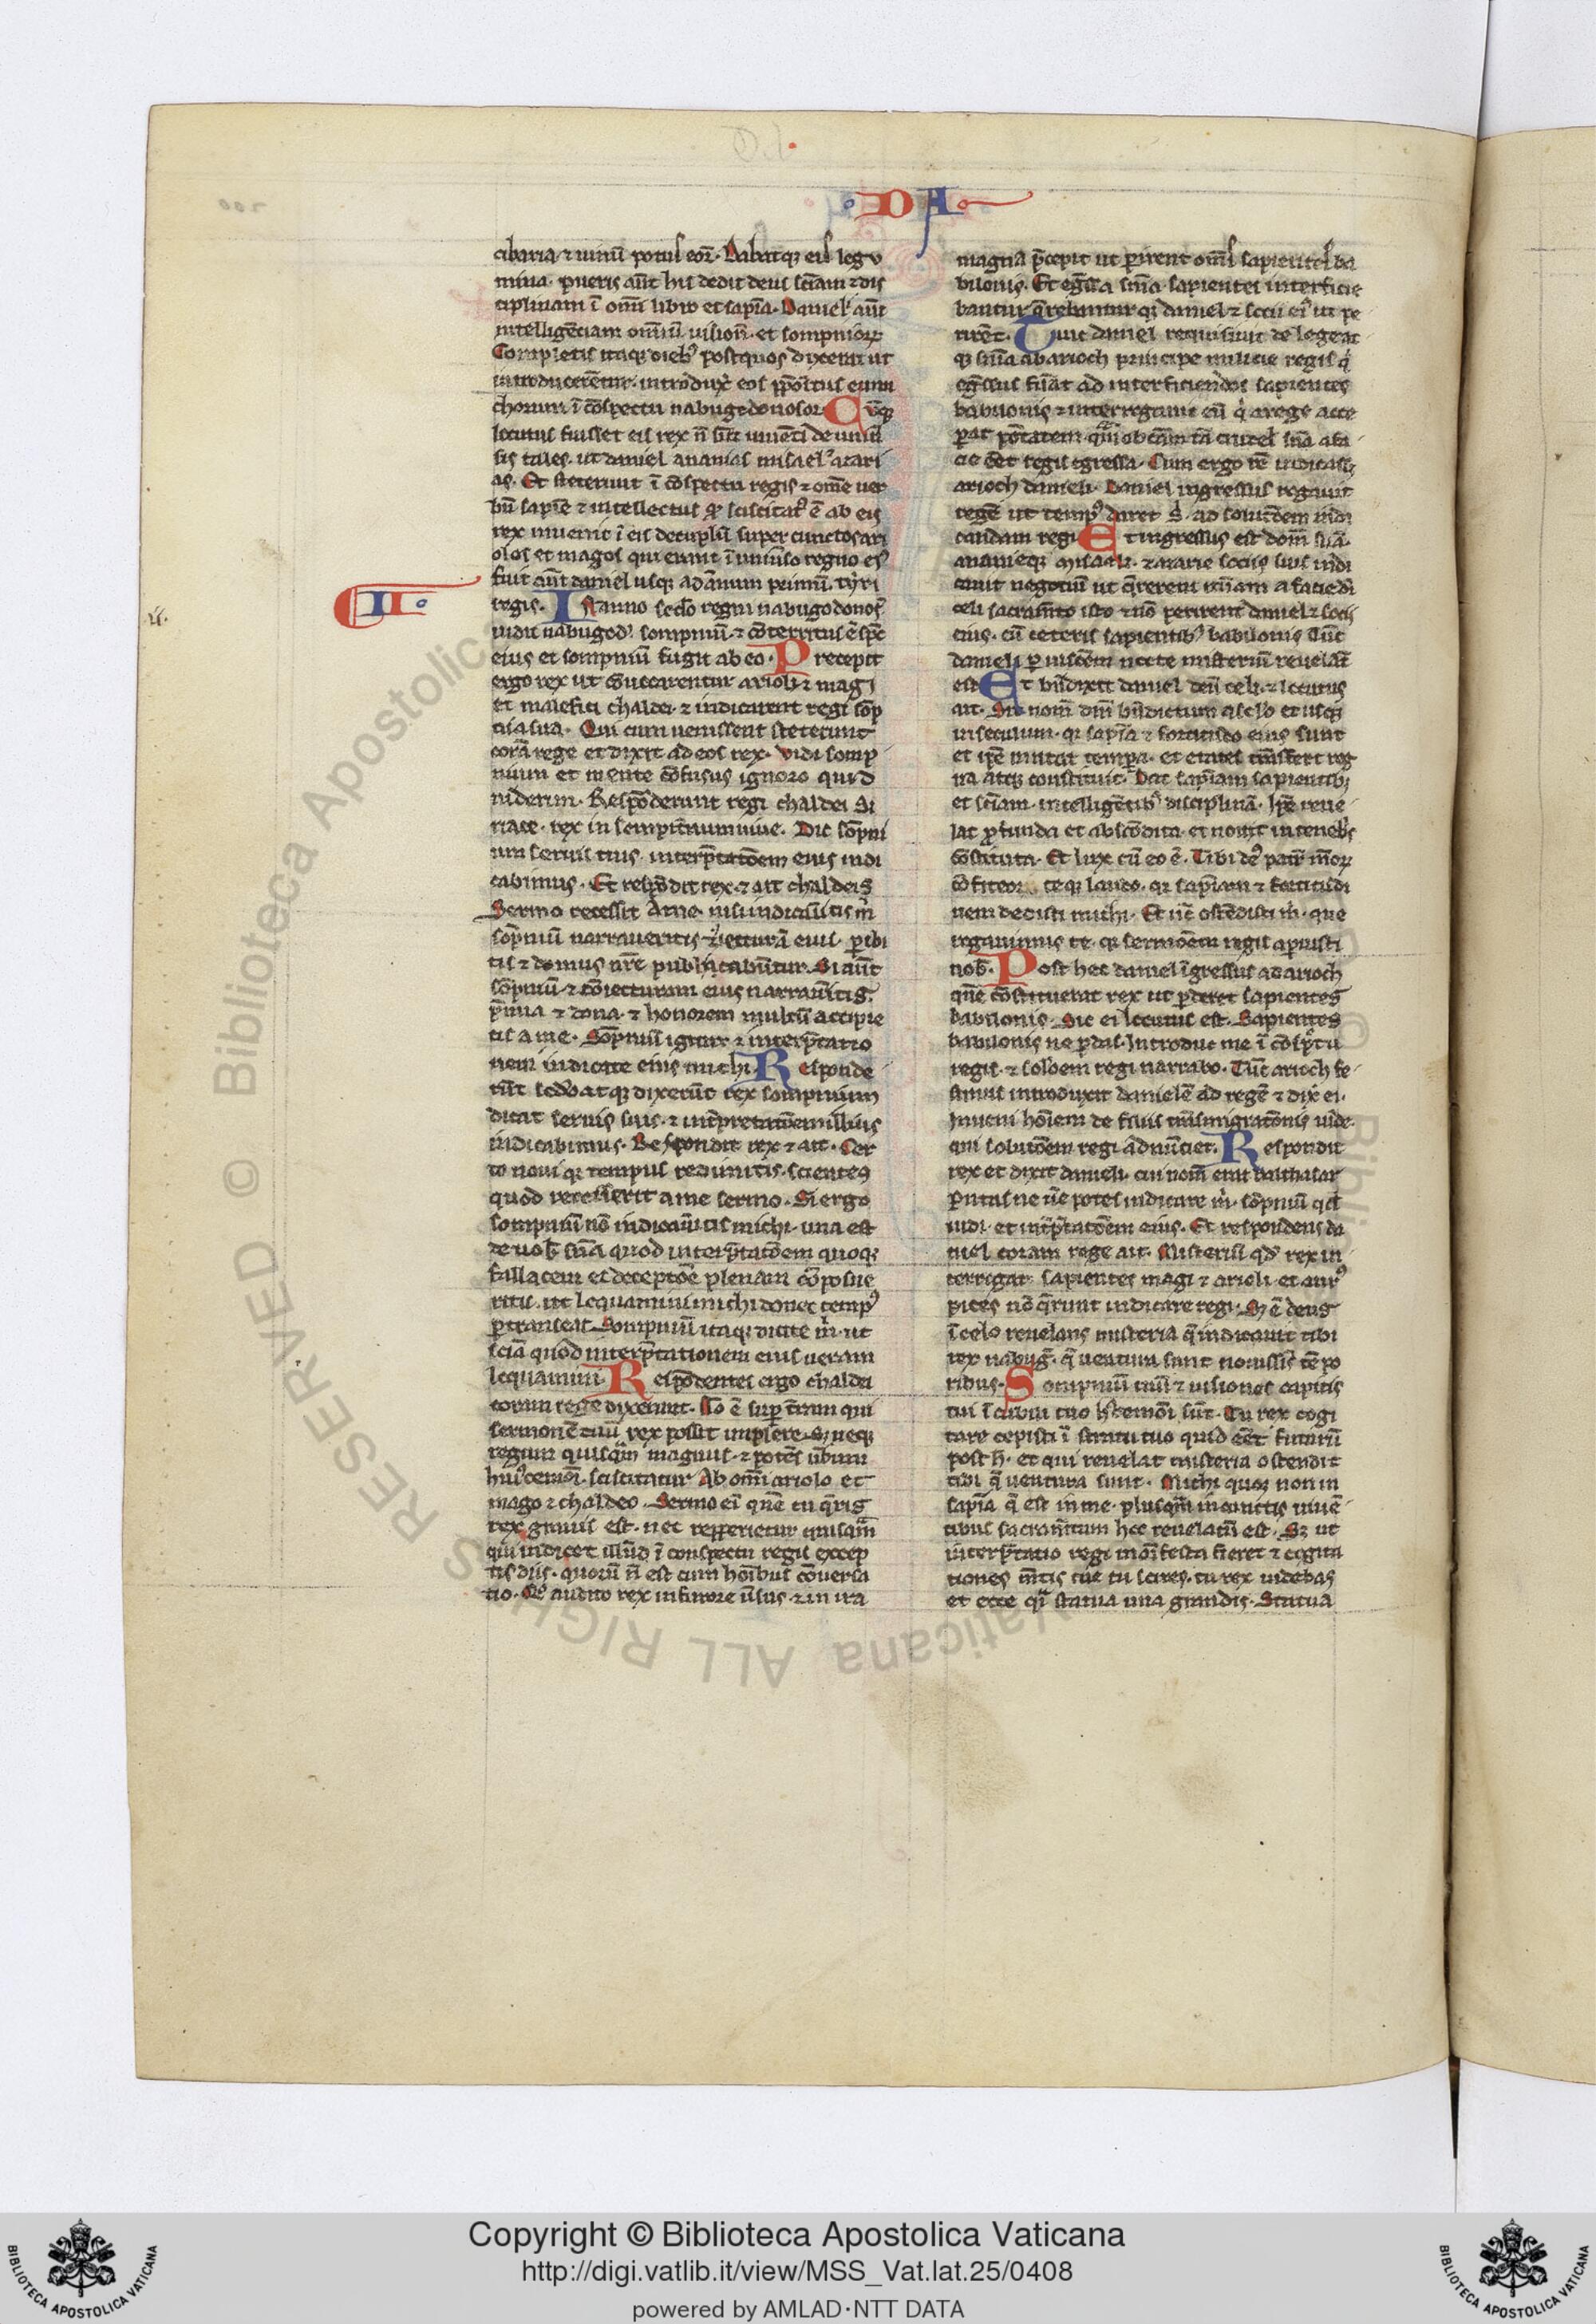 DA
cibaria ⁊ uinū potus eoꝝ. Dabatq; eis legu
mina. pueris aūt his dedit deus sciam ⁊ dis
ciplinam ī om̄i libro et sapīa. Daniel' aūt
intelligētiam omniū uision̄. et sompnioꝝ
Completis itaq; dieb; post quos dixerat
introducerētur. introduxit eos p̄positus eunu
choꝝ ī cōspectu nabugodonosor. Cūq;
locutus fuisset eis rex nō sūt inuēti de uniuer
sis tales. ut daniel ananias misael ⁊ azari
as. Et steterunt ī cōspectu regis ⁊ omē uer
bū sapīe ⁊ intellectus qd sciscitat' ē ab eis
rex inuenit ī eis decuplū super cunctos ari
olos et magos qui erant ī uniūso regno ei'
fuit aūt daniel usq; ad annum primū. cyri
II
regis. In anno scdo regni nabugodonos
uidit nabugod' sompniū. ⁊ cōterritus ē sp̄c
eius et sompniū fugit ab eo. Precepit
ergo rex ut cōuocarentur arioli ⁊ magi
et malefici chaldei. ⁊ indicarent regi sōp
nia sua. Qui cum uenissent steterunt
corā rege et dixit ad eos rex. Vidi somp
nium et mente cōfusus ignoro quid
uiderim. Respōderunt regi chaldei Si
riace. rex in sempit̄num uiue. Dic sōpni
um seruis tuis. interp̄tatōem eius indi
cabimus. Et respōdit rex ⁊ ait chaldeis
Sermo recessit A me. nisi indicaūitis m̄
sōpniū narraueritis ⁊ iecturā eius. peribi
tis ⁊ domus ur̄e publicabūtur. Si aūt
sōpniū ⁊ cōiecturam eius narraūitis.
p̄mia ⁊ dona. ⁊ honorem multū accipie
tis a me. Sōpniū igitur ⁊ interp̄tatio
nem indicate eius michi. Responde
rūt sedo atq; dixerūt rex sompnium
dicat seruis suis. ⁊ int̄pretatōem illius
indicabimus. Respondit rex ⁊ ait. Cer
to noui q; tempus redimitis. scientes
quod recesserit a me sermo. Si ergo
sompniū nō indicaūitis michi. una est
de uob' snīa quod interp̄tatōem quoq;
fallacem et deceptōe plenam cōposue
ritis. ut loquamini michi donec temp'
p̄transeat. Sompniū itaq; dicite m̄. ut
sciā quod interp̄tationem eius ueram
loquamini. Respōdentes ergo chaldei
coram rege dixerunt. Nō ē sup t̄ram qui
sermonē tuū rex possit implere. Sz neq;
regum quisq̄m magnus. ⁊ potēs ūbum
hui'cemōi. sciscitatur Ab om̄i ariolo et
mago ⁊ chaldeo. Sermo eī quē tu q̄ris
rex grauis est. nec repperietur quisq̄m
qui indicet illud ī conspectu regis excep
tis diis. quorū n̄ est cum hoībus cōuersa
tio. Qo audito rex in furore ūsus. ⁊ in ira
magnā p̄cepit ut perirent om̄s sapientes ba
bilonis. Et eḡssa snīa. sapientes interficie
bantur. q̄rebantur q; daniel ⁊ socii ei' ut pe
rirēt. Tunc daniel requisiuit de lege at
q; snīa ab arioch principe milicie regis q
eḡssus fūat ad interficiendos sapientes
babilonis ⁊ interrogauit eū q̄ a rege acce
perat potatem. q̄m ob cām tā crudel' snīa a fa
cie eēt regis egressa. Cum ergo rē indicass;
arioch danieli. Daniel ingressus rogauit
regē ut temp' daret s' ad solutōem indi
candam regi. Et ingressus est domū suā.
ananieq; misaeli. ⁊ azarie sociis suis indi
cauit negotiū ut q̄rerent mīam a facie dī
celi sacram̄to isto ⁊ nō perirent daniel ⁊ socii
eius. cū ceteris sapientib' babilonis Tūc
danieli p uisiōem nocte misteriū reuelat̄
est. Et bn̄dixit daniel deū celi. ⁊ locutus
ait. Sit nom̄ dn̄i bn̄dictum a sclo et usq;
in seculum. q; sapīa ⁊ fortitudo eius sunt
et ip̄e mutat tempora. et etates trāsfert reg
na atq; constituit. Dat sapiam sapientib;
et sciam. intelligētib' disciplinā. Ip̄e reue
lat p̄funda et abscōdita. et nouit in teneb's
cōstituta. Et lux cū eo ē. Tibi de' patr̄ nr̄oꝝ
cōfiteor. teq; laudo. q; sapiam ⁊ fortitudi
nem dedisti michi. Et nūc ostēdisti m̄. que
rogauimus te. q; sermōem regis apuisti
nob'. Post hec daniel īgressus ad arioch
quē cōstituerat rex ut p̄deret sapientes
babilonis. Sic ei locutus est. Sapientes
babilonis ne p̄das. Introduc me ī cōspc̄tu
regis. ⁊ solōem regi narrabo. Tūc arioch fe
stinus introduxit danielē ad regē ⁊ dix' ei.
Inueni hoīem de filiis trāsmigratōnis iude.
qui solutōem regi adnūciet. Respondit
rex et dixit danieli. cui nom̄ erat balthasar
Putas ne ūe potes indicare m̄. sōpniū qd
uidi. et int̄p̄tatōem eius. Et respondens da
niel coram rege ait. Misteriū qd' rex in
terrogat. sapientes magi ⁊ arioli. et aurs'
pices nō q̄unt indicare regi. Sz ē deus
ī celo reuelans misteria q̄ indicauit tibi
rex nabug'. q̄ uentura sunt nouissīs tēpo
ribus. Sompniū tuū ⁊ uisiones capitis
tui ī cubili tuo h'cemōi sūt. Tu rex cogi
tare cepisti ī stratu tuo quid eēt futurū
post h'. et qui reuelat misteria ostendit
tibi q̄ uentura sunt. Michi quoq; non in
sapīa q̄ est in me. plusq̄m in cunctis uiuē
tibus sacram̄tum hoc reuelatū est. Sz ut
interp̄tatio regi mōifesta fieret ⁊ cogita
tiones m̄tis tue tu scires. tu rex uidebas
et ecce q̄i statua una grandis. Statua
Copyright © Biblioteca Apostolica Vaticana
http://digi.vatlib.it/view/MSS_Vat.lat.25/0408
powered by AMLAD·NTT DATA
BIBLIOTECA APOSTOLICA VATICANA
BIBLIOTECA APOSTOLICA VATICANA
© Biblioteca Apostolica Vaticana ALL RIGHTS RESERVED